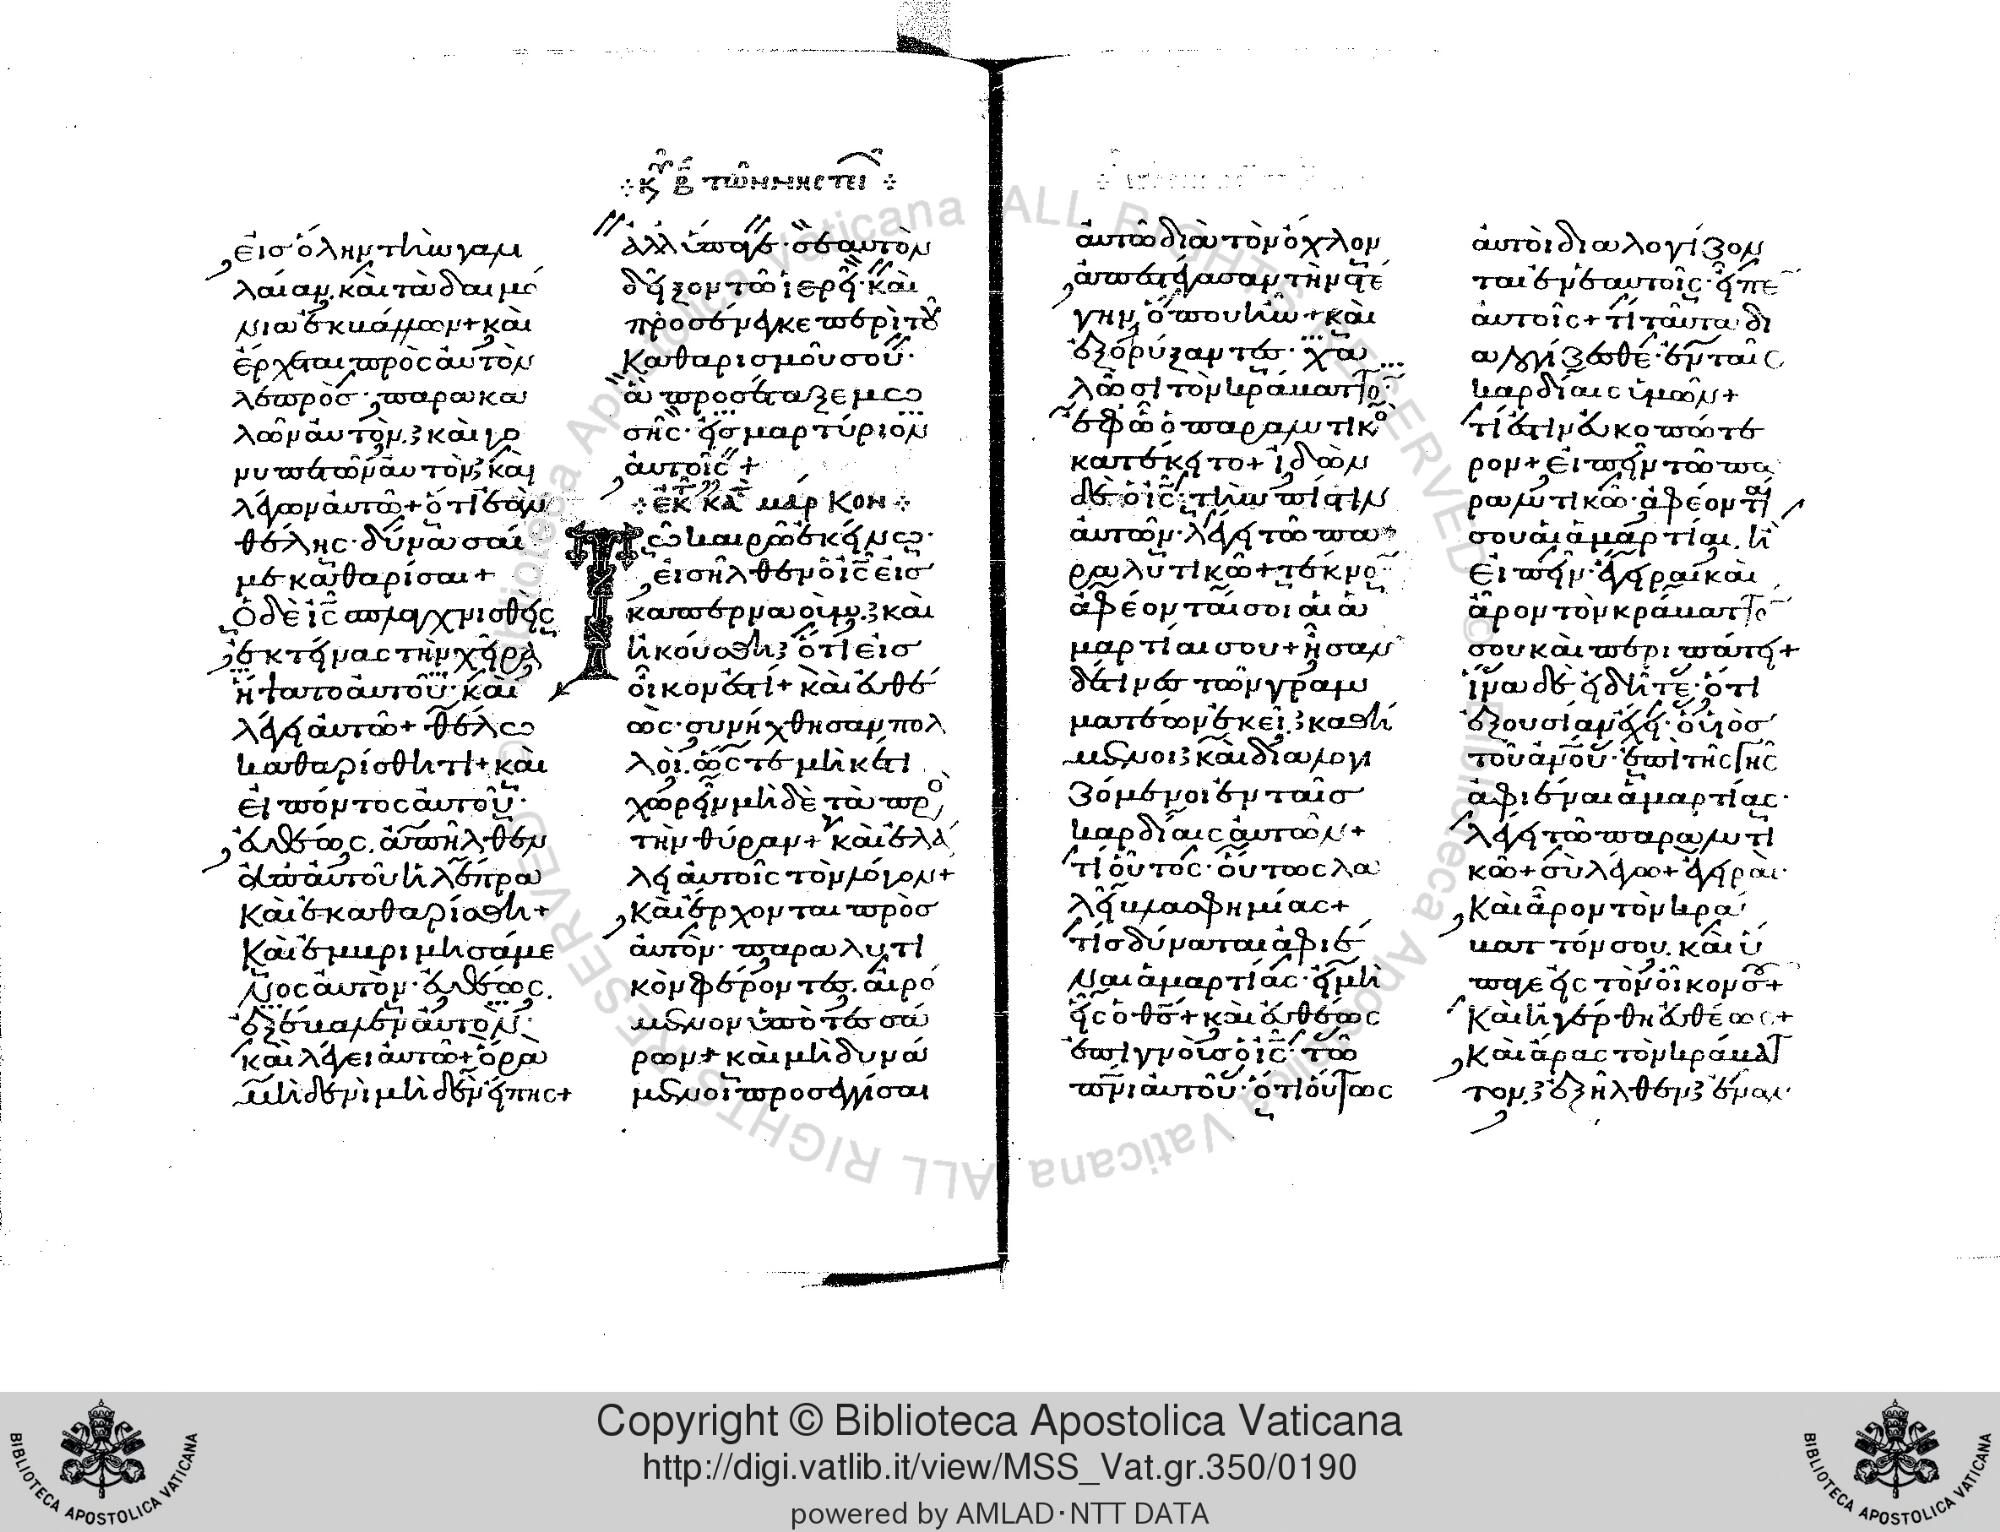 εἰς ὅλην τὴν γαλι
λαίαν. καὶ τὰ δαιμό
νια ἐκβάλλων + καὶ
ἔρχεται πρὸς αὐτὸν
λεπρὸς· παρακα
λῶν αὐτὸν· καὶ γο
νυπετῶν αὐτὸν· καὶ
λέγων αὐτῶ + ὅτι ἐὰν
θέλης· δύνασαί
με καθαρίσαι +
Ὁ δὲ ἰς σπλαγχνισθεὶς
ἐκτείνας τὴν χεῖρα
ἥψατο αὐτοῦ· καὶ
λέγει αὐτῶ + θέλω
καθαρίσθητι + καὶ
εἰπόντος αὐτοῦ·
εὐθέως. ἀπῆλθεν
ἀπ αὐτοῦ ἡ λέπρα
Καὶ ἐκαθαρίσθη +
Καὶ ἐμβριμησάμε
νος αὐτὸν· εὐθέως.
ἐξέβαλεν αὐτόν·
καὶ λέγει αὐτῶ + ὅρα
μηδενὶ μηδὲν εἴπης +
κυ β τῶν νηστει
ἀλλ ὕπαγε· σεαυτὸν
δεῖξον τῶ ἱερεῖ· καὶ
προσένεγκε περὶ τοῦ
καθαρισμοῦ σου·
ἃ προσέταξε μω
σῆς· εἰς μαρτύριον
αὐτοῖς +
ἐκ τ κατὰ μάρκον
Τῶ καιρῶ ἐκείνω·
εἰσῆλθεν ὁ ἰς εἰς
καπερναοὺμ· καὶ
ἠκούσθη· ὅτι εἰς
οἶκον ἐστί + καὶ εὐθέ
ως· συνήχθησαν πολ
λοὶ. ὥστε μηκέτι
χωρεῖν μηδὲ τὰ πρὸ
τὴν θύραν + καὶ ἐλά
λει αὐτοῖς τὸν λόγον +
Καὶ ἔρχονται πρὸς
αὐτὸν· παραλυτι
κὸν φέροντες. αἰρό
μενον ὑπὸ τεσσά
ρων + καὶ μὴ δυνά
μενοι προσεγγίσαι
αὐτῶ διὰ τὸν ὄχλον
ἀπεστέγασαν τὴν στέ
γην ὅπου ἦν + καὶ
ἐξορύξαντες· χα
λῶσι τὸν κράματτο
ἐφ ὧ ὁ παραλυτικὸ
κατέκειτο + ἰδὼν
δὲ ὁ ἰς· τὴν πίστιν
αὐτῶν· λέγει τῶ πα
ραλυτικῶ + τέκνο
ἀφέονταί σοι αἱ ἁ
μαρτίαι σου + ἦσαν
δέ τινες τῶν γραμ
ματέων ἐκεῖ· καθή
μενοι· καὶ διαλογι
ζόμενοι ἐν ταῖς
καρδίαις αὐτῶν +
τί οὗτος· οὕτως λα
λεῖ βλασφημίας +
τίς δύναται ἀφιέ
ναι ἁμαρτίας· εἰ μὴ
εἷς ὁ θς + καὶ εὐθέως
ἐπιγνοὺς ὁ ἰς· τῶ
πνι αὐτοῦ· ὅτι οὕτως
αὐτοὶ διαλογίζον
ται ἐν ἑαυτοῖς· εἶπε
αὐτοῖς + τί ταῦτα δι
αλογίζεσθε· ἐν ταῖς
καρδίαις ὑμῶν +
τί ἐστιν εὐκοπώτε
ρον + εἰπεῖν τῶ πα
ραλυτικῶ· ἀφέονταί
σου αἱ ἁμαρτίαι. ἢ
εἰπεῖν· ἔγειραι καὶ
ἆρον τὸν κράματτο
σου καὶ περιπάτει +
ἵνα δὲ εἰδῆτε· ὅτι
ἐξουσίαν ἔχει· ὁ υἱὸς
τοῦ ἀνου· ἐπὶ τῆς γῆς
ἀφιέναι ἁμαρτίας·
λέγει τῶ παραλυτι
κῶ + σὺ λέγω + ἔγειραι·
Καὶ ἆρον τὸν κρά
ματτόν σου. καὶ ὕ
παγε εἰς τὸν οἶκον σου +
Καὶ ἠγέρθη εὐθέως +
Καὶ ἄρας τὸν κράματ
τον· ἐξῆλθεν· ἐναν
Copyright © Biblioteca Apostolica Vaticana
http://digi.vatlib.it/view/MSS_Vat.gr.350/0190
powered by AMLAD·NTT DATA
BIBLIOTECA APOSTOLICA VATICANA
BIBLIOTECA APOSTOLICA VATICANA